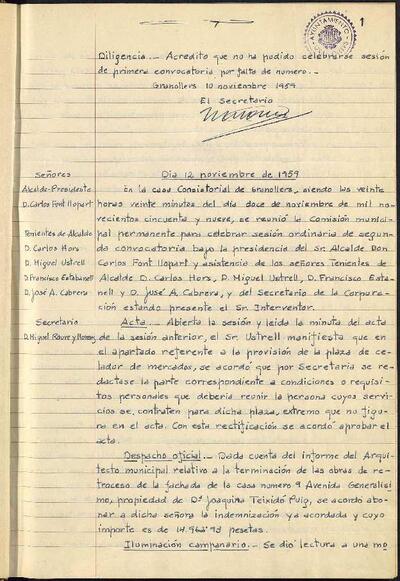 1
AYUNTAMIENTO
Diligencia.- Acredito que no ha podido celebrarse sesión
de primera convocatoria por falta de número.-
Granollers 10 noviembre 1959
El Secretario
Señores
Día 12 noviembre de 1959
Alcalde-Presidente
D. Carlos Font Llopart
Tenientes de Alcalde
D. Carlos Hors
D. Miguel Ustrell
D. Francisco Estabanell
D. José A. Cabrera
Secretario
En la casa Consistorial de Granollers, siendo las veinte
horas veinte minutos del día doce de noviembre de mil no-
vecientos cincuenta y nueve, se reunió la Comisión munici-
pal permanente para celebrar sesión ordinaria de segun-
da convocatoria bajo la presidencia del Sr. Alcalde Don
Carlos Font Llopart y asistencia de los señores Tenientes de
Alcalde D. Carlos Hors, D. Miguel Ustrell, D. Francisco Esta-
nell y D. José A. Cabrera, y del Secretario de la Corpora-
ción estando presente el Sr. Interventor.
D. Miguel
Acta.- Abierta la sesión y leída la minuta del acta
de la sesión anterior, el Sr. Ustrell manifiesta que en
el apartado referente a la provisión de la plaza de ce-
lador de mercados, se acordó que por Secretaría se re-
dactase la parte correspondiente a condiciones o requisi-
tos personales que debería reunir la persona cuyos servi-
cios se contraten para dicha plaza, extremo que no figu-
ra en el acta. Con esta rectificación se acordó aprobar el
acta.
Despacho oficial.- Dada cuenta del informe del Arqui-
tecto municipal relativo a la terminación de las obras de re-
troceso de la fachada de la casa número 9 Avenida Generalísi-
mo, propiedad de Dª Joaquina Teixidó Puig, se acordó abo-
nar a dicha señora la indemnización ya acordada y cuyo
importe es de 14.962'93 pesetas.
Iluminación campanario.- Se dió lectura a una mo